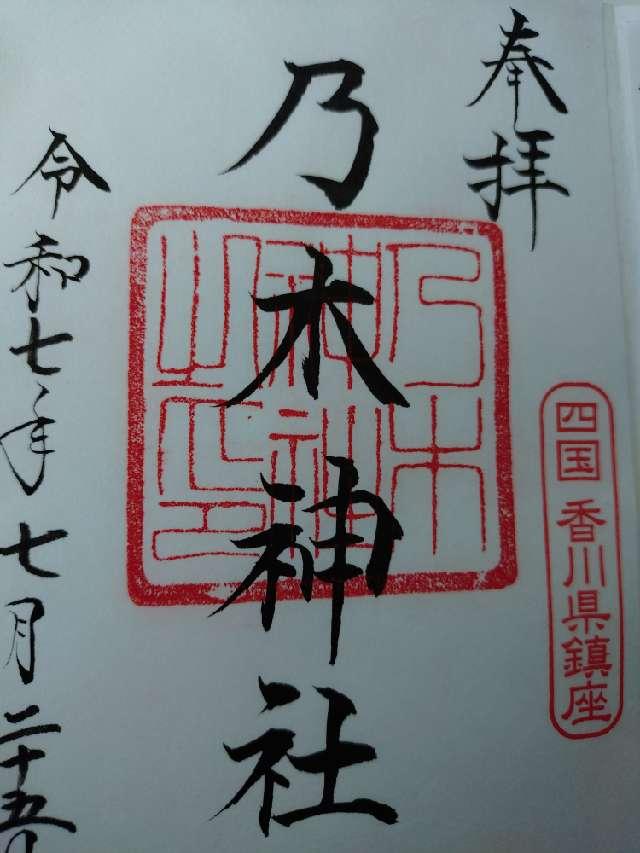 奉拝
四国 香川県鎮座
乃木神社
乃木神社之印
令和七年七月二十五日